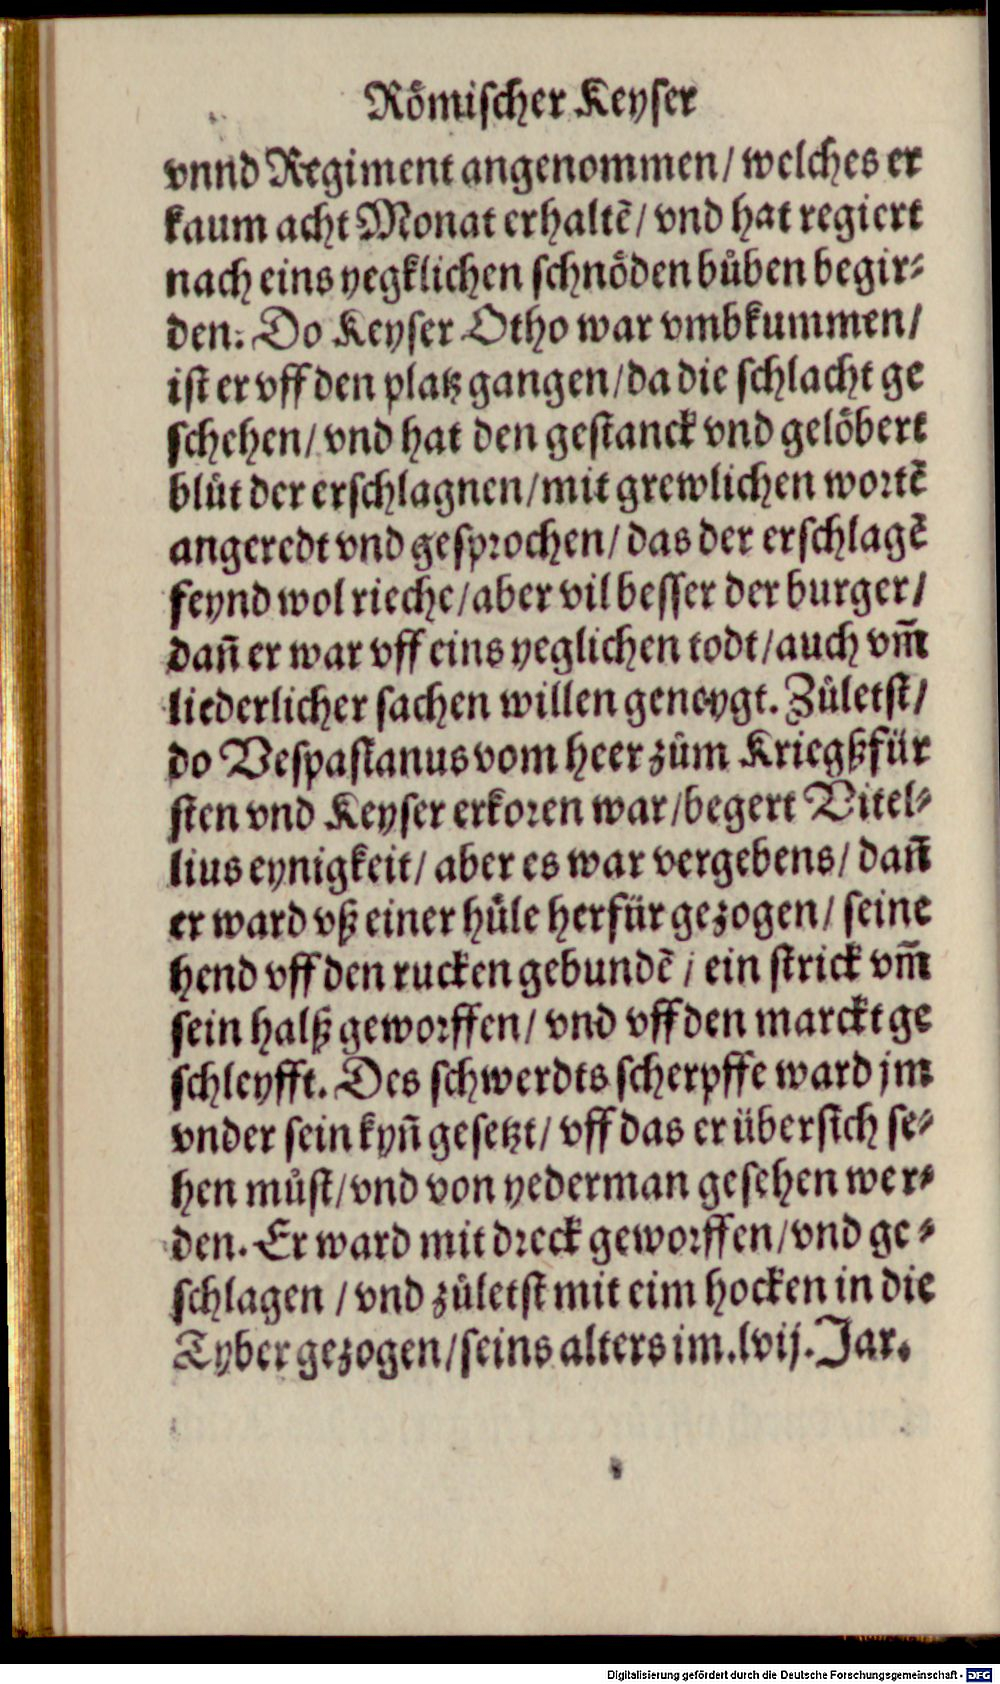 Roͤmiſcher Keyſer
vnnd Regiment angenommen/ welches er
kaum acht Monat erhaltẽ/ vnd hat regiert
nach eins yegklichen ſchnoͤden buͤben begir⸗
den: Do Keyſer Otho war vmbkummen/
iſt er vff den platz gangen/ da die ſchlacht ge
ſchehen/ vnd hat den geſtanck vnd geloͤbert
bluͤt der erſchlagnen/ mit grewlichen wortẽ
angeredt vnd geſprochen/ das der erſchlagẽ
feynd wol rieche/ aber vil beſſer der burger/
dañ er war vff eins yeglichen todt/ auch vm̃
liederlicher ſachen willen geneygt. Zuͤletſt/
do Veſpaſianus vom heer zuͤm Kriegßfür
ſten vnd Keyſer erkoren war/ begert Vitel⸗
lius eynigkeit/ aber es war vergebens/ dañ
er ward vß einer huͤle herfür gezogen/ ſeine
hend vff den rucken gebundẽ/ ein ſtrick vm̃
ſein halß geworffen/ vnd vff den marckt ge
ſchleyfft. Des ſchwerdts ſcherpffe ward jm
vnder ſein kyñ geſetzt/ vff das er überſich ſe⸗
hen muͤſt/ vnd von yederman geſehen wer⸗
den. Er ward mit dreck geworffen/ vnd ge⸗
ſchlagen / vnd zuͤletſt mit eim hocken in die
Tyber gezogen/ ſeins alters im. lvij. Jar.
Digitalisierung gefördert durch die Deutsche Forschungsgemeinschaft - DFG